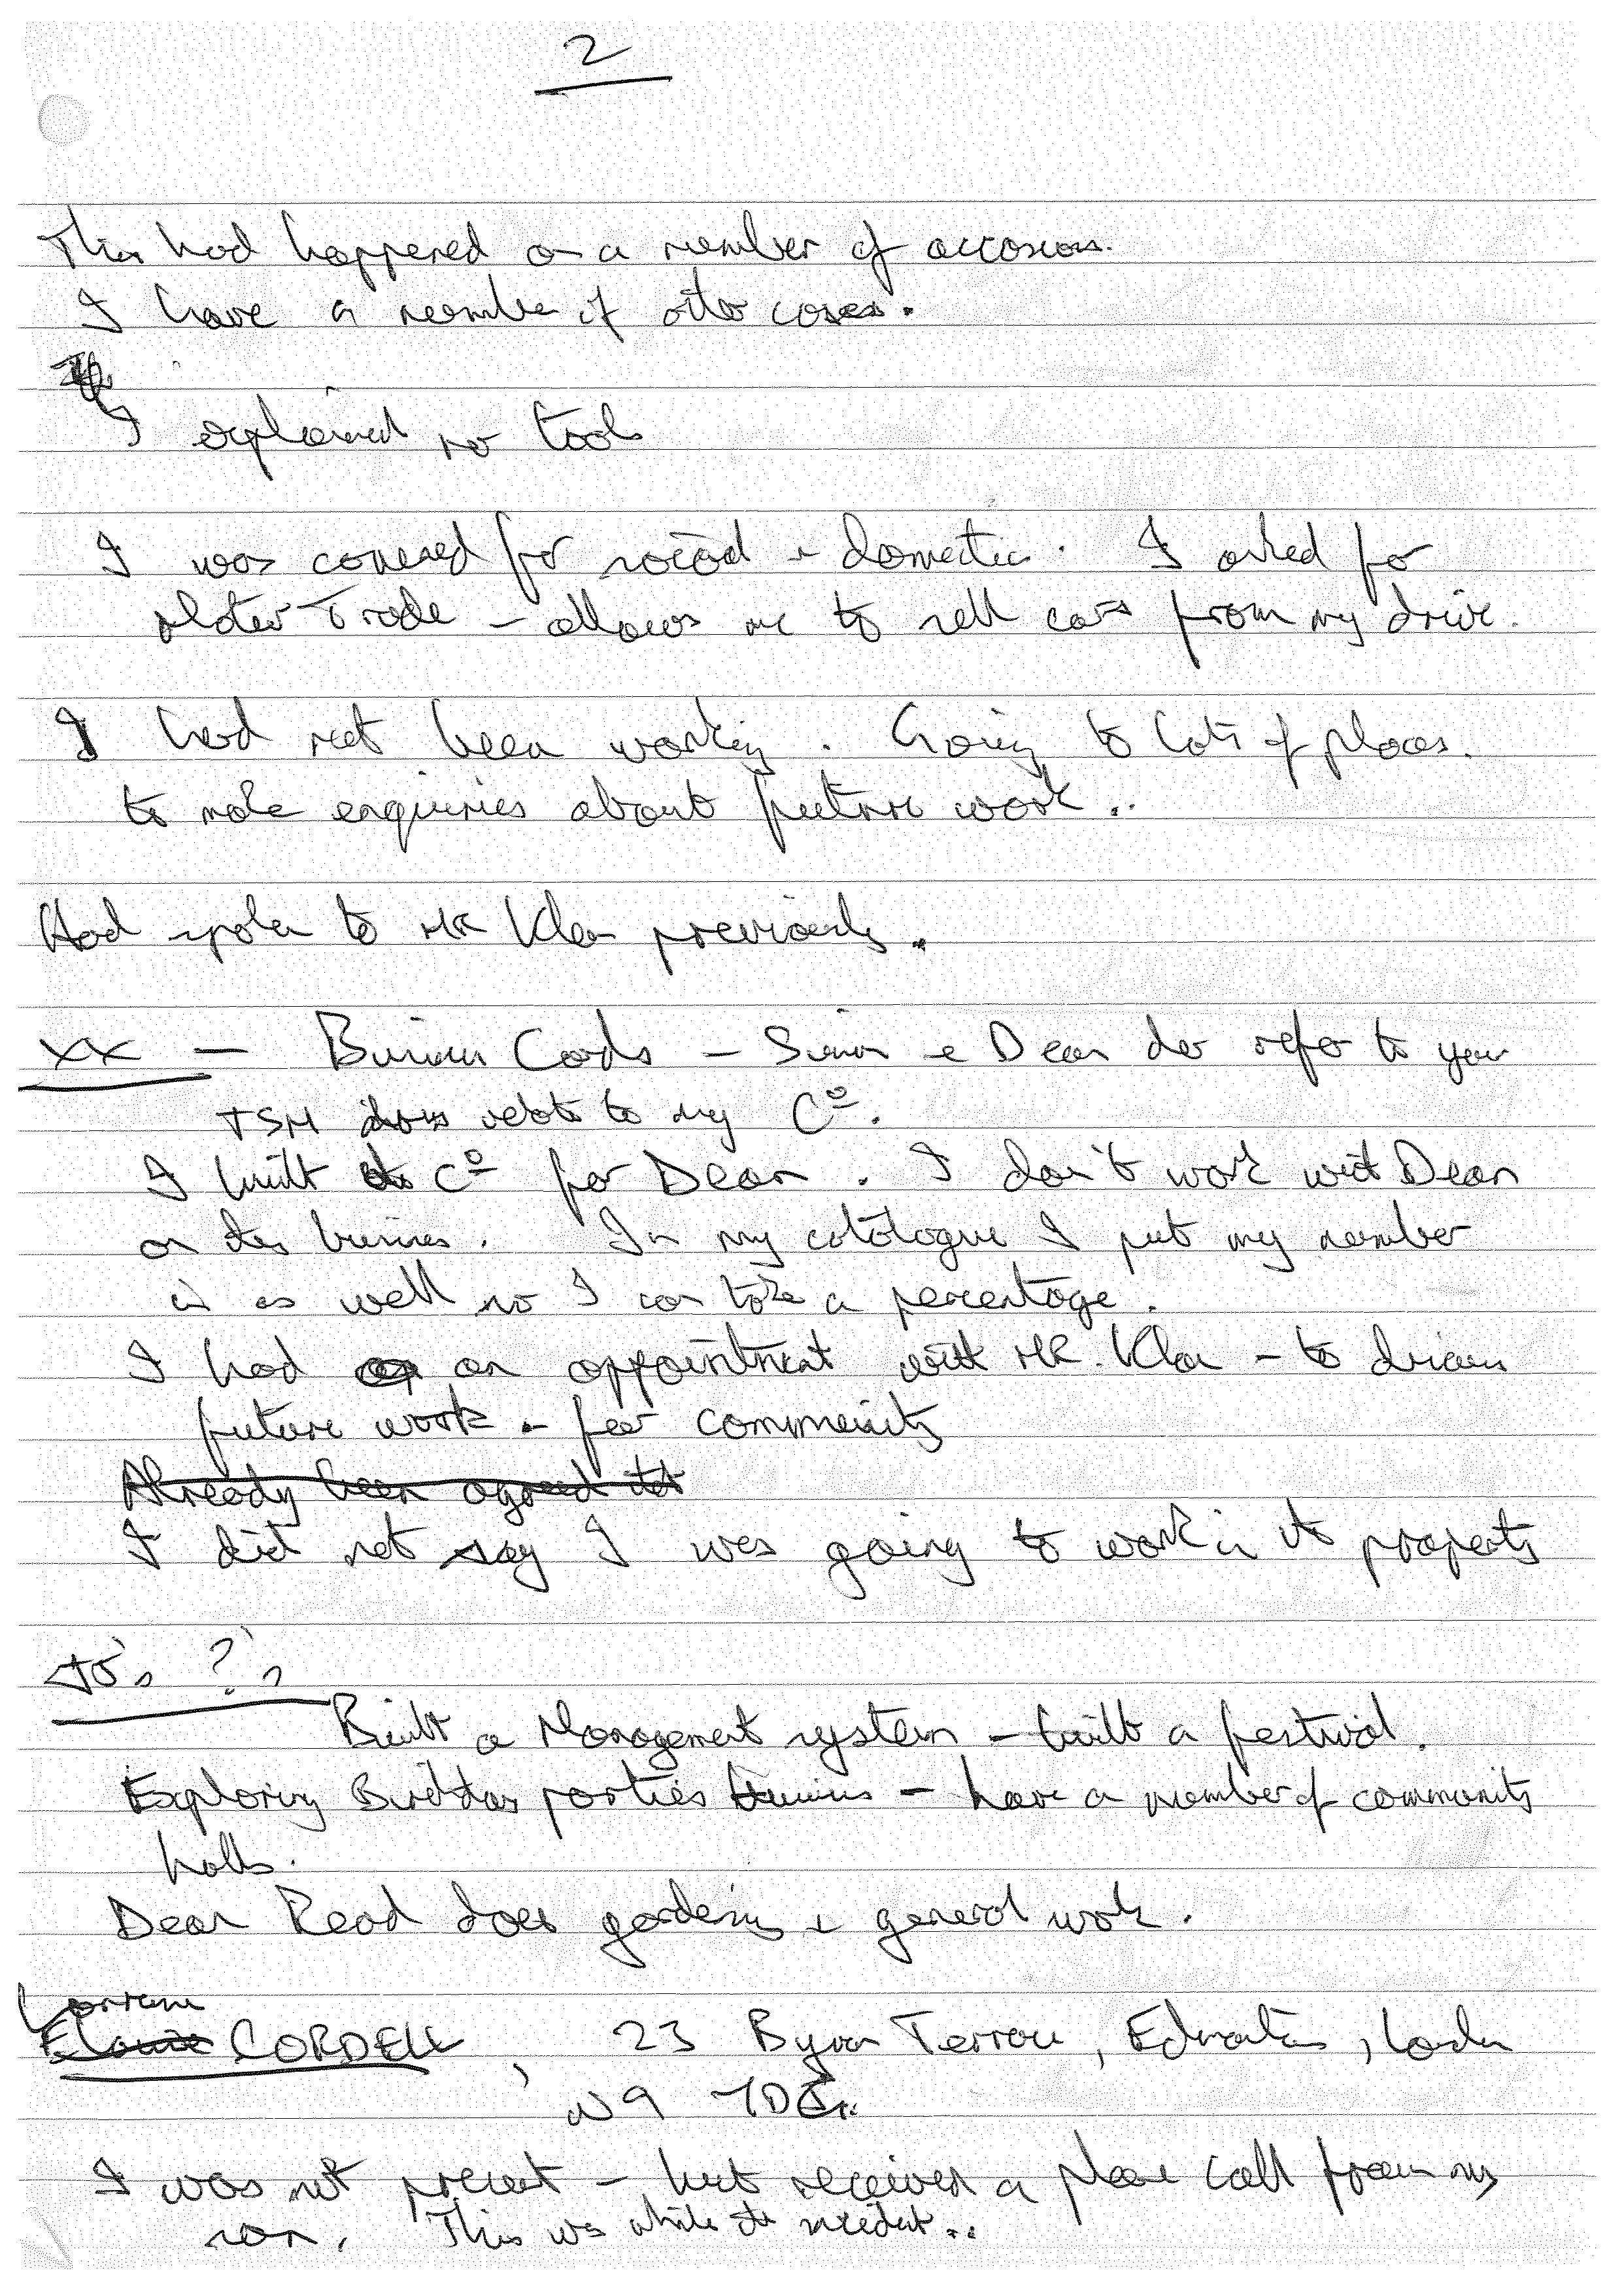 2
This had happened on a number of occasions.
I have a number of other cases.
I explained no tools
I was covered for social + domestic. I asked for
Motor Trade - allows me to sell cars from my drive.
I had not been working. Going to lots of places.
to make enquiries about future work..
Had spoken to MR Khan previously.
XX - Business Cards - Simon + Dean do refer to you
TSM does relate to my Cº.
I built the Cº for Dean. I don't work with Dean
on this business. In my catalogue I put my number
in as well so I can take a percentage.
I had an appointment with MR. Khan - to discuss
future work - for community
Already been agreed that
I did not say I was going to work in the property
J's ?'s
Built a Management system - built a festival.
Exploring Birthday parties business - have a number of community
halls.
Dean Read does gardening + general work.
Lorraine
CORDELL, 23 Byron Terrace, Edmonton, London
N9 7DG.
I was not present - but received a phone call from my
son. This was while the incident..